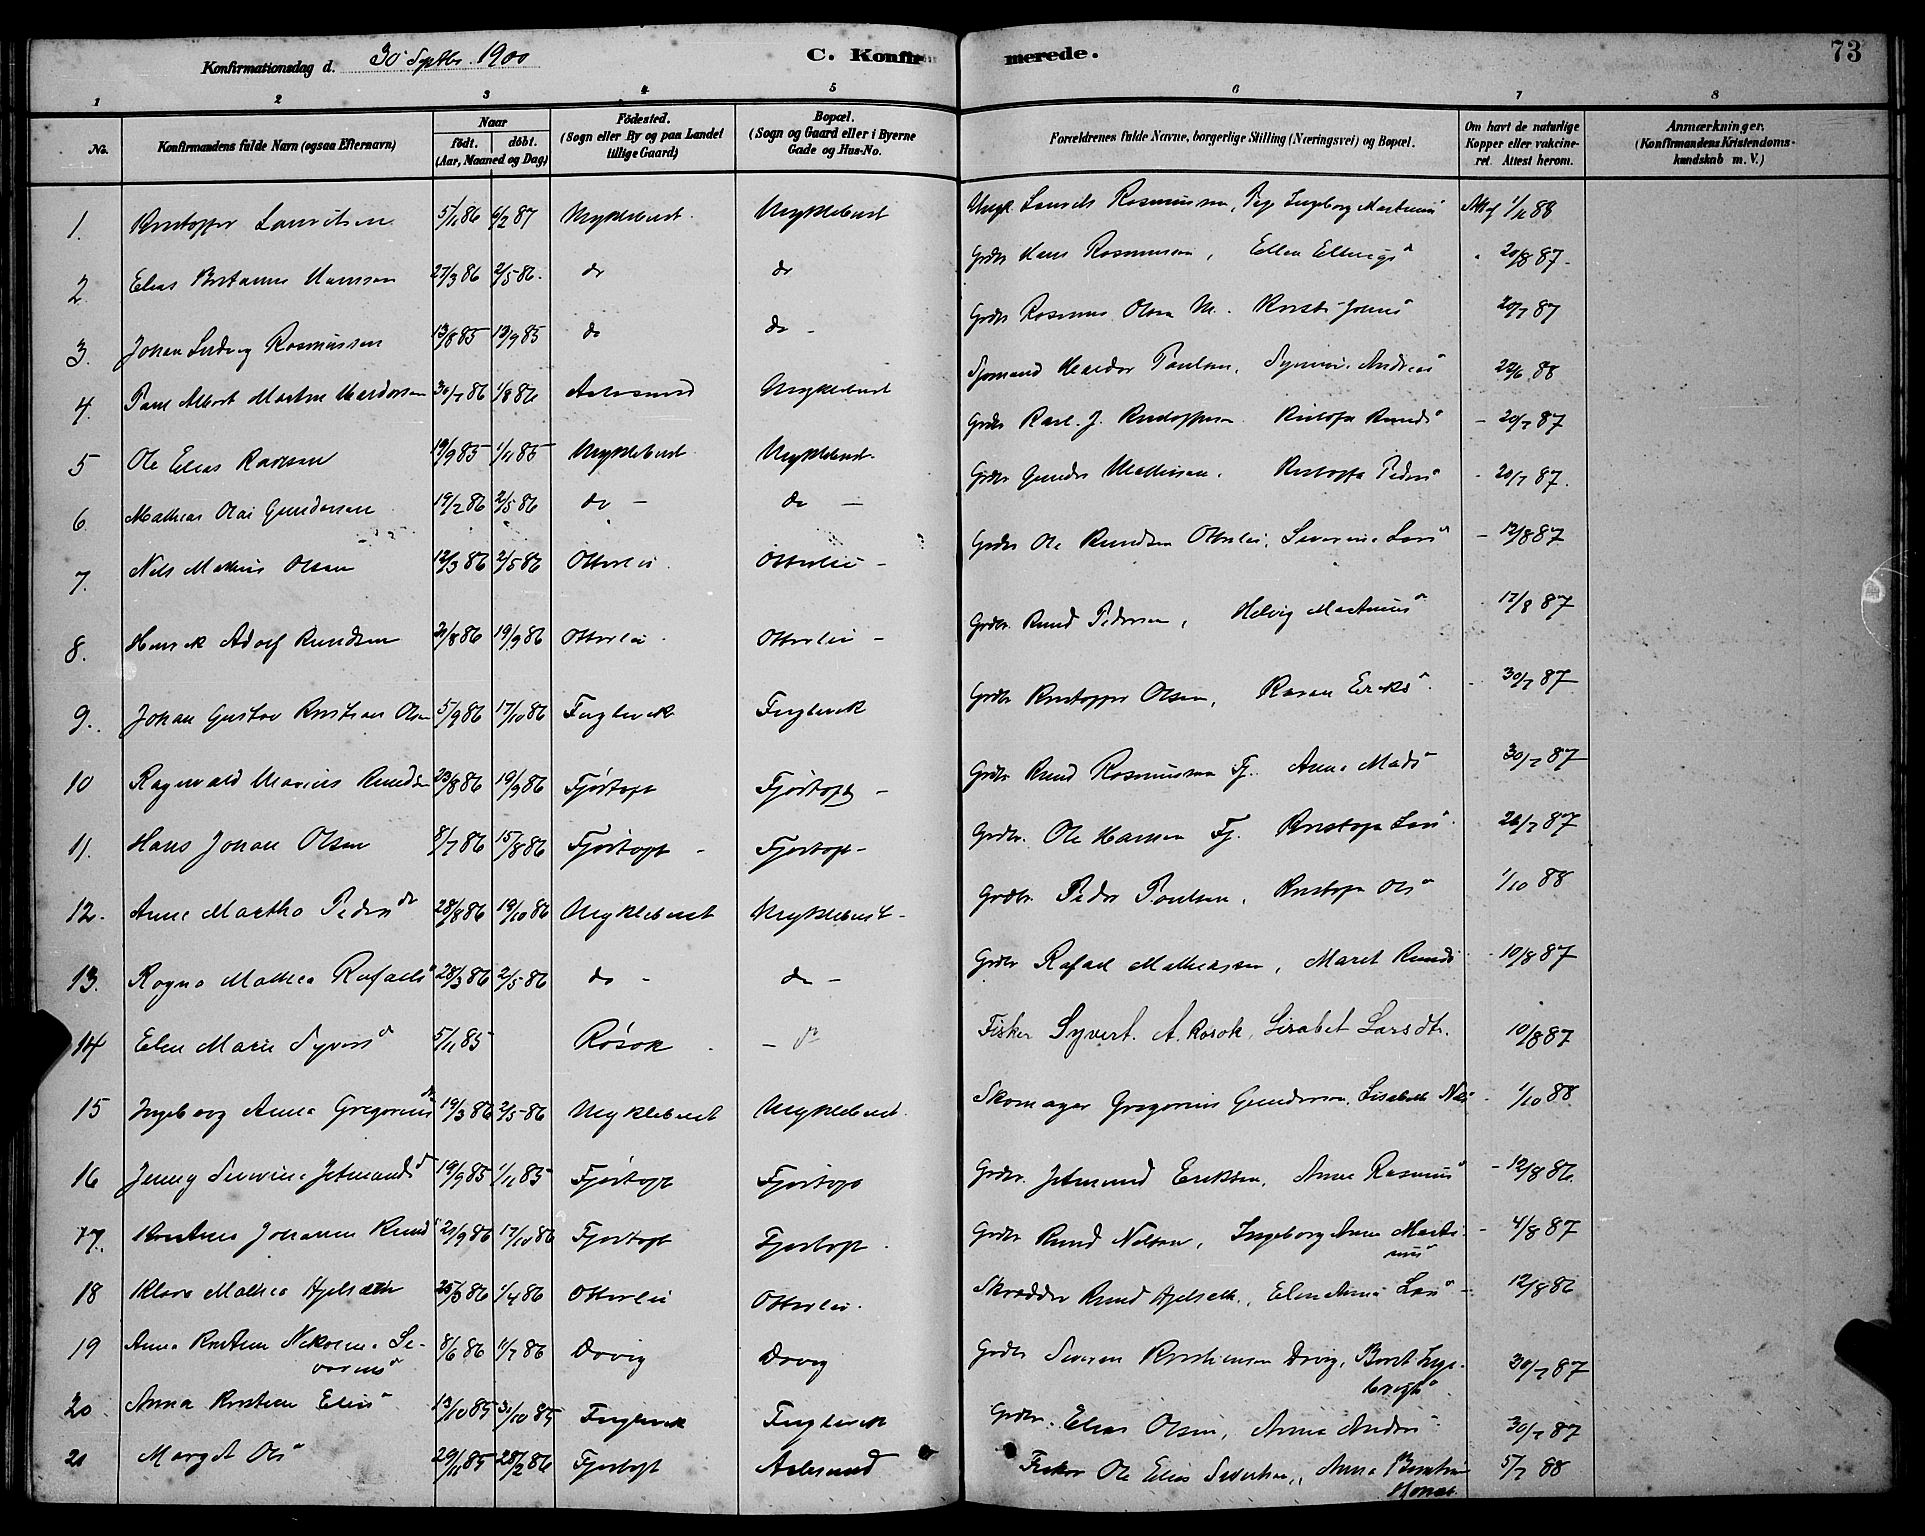 Konfirmationsdag d. 30 Septbr. 1900
C. Konfirmerede.
73
1 2 3 4 5 6 7 8
No.
Konfirmandens fulde Navn (ogsaa Efternavn)
Naar
født. døbt.
(Aar, Maaned og Dag)
Fødested.
(Sogn eller By og paa Landet
tillige Gaard)
Bopæl.
(Sogn og Gaard eller i Byerne
Gade og Hus-No.
Forældrenes fulde Navne, borgerlige Stilling (Næringsvei) og Bopæl.
Om havt de naturlige
Kopper eller vakcine-
ret. Attest herom.
Anmærkninger.
(Konfirmandens Kristendoms-
kundskab m. V.)
1. Kristoffer Lauritsen 5/11 86 6/2 87 Myklebust Myklebust Ungk. Laurits Rasmussen, Pige Ingeborg Martinusd Att. af 1/11 88
2. Elias Kristannus Hansen 27/3 86 2/5 86. do do Grdbr Hans Rasmussen, Ellen Ellingsd " 20/8 87.
3. Johan Ludvig Rasmussen 13/8 85 13/9 85 do do - Grdbr Rasmus Olsen M. 20/7 87
4. Paul Albert Martin 30/7 86 1/8 86 Aalesund Myklebust Sjømand Paulsen, Andreasd 22/6 88
5 Ole Elias Karlsen 19/9 85 1/11 85 Myklebust Myklebust. Grdbr Karl. J. Kristoffersen Kristofa Knudsd - 20/7 87
6. Mathias Olai Gundersen 19/2 86 2/5 86 do - do - Grdbr Gunder Mathisen. Kristofa Pedersd - 20/7 87.
7. Nels Matheus Olsen 12/3 86 2/5 86 Otterlei. Otterlei - Grdbr Ole Knudsen Otterlei, Severine Larsd - 12/8 87
8. Henrik Adolf Knudsen 21/8 86 19/9 86 Otterlei. Otterlei - Grdbr. Knud Pedersen, Helvig Martinusd 12/8 87
9. Johan Gustav Kristian Olsen 5/9 86 17/10 86 Fuglevik Fuglevik Grdbr Kristoffer Olsen, Karen Eriksd. 30/7 87
10 Ragnvald Marius Knudsen 23/8 86 19/9 86 Fjørtoft Fjørtoft - Grdbr Knud Rasmussen Fj. Anne Madsd 30/7 87
11. Hans Johan Olsen 8/7 86 15/8 86 Fjørtoft - Fjørtoft - Grdbr. Ole Hansen Fj. Kristofa Larsd 26/7 87
12. Anne Martha Pedersdr 28/8 86 19/10 86 Myklebust Myklebust - Grdbr. Peder Paulsen, Kristofa Olsd 1/10 88
13. Ragna Mathea Rafaelsd 28/3 86 2/5 86 do - do - Grdbr Rafael Mathiassen, Maret Knudsd - 10/8 87
14 Elen Marie Syversd 5/11 85 Røsok. - do Fisker Syvert. A. Røsok, Lisabet Larsdtr. 10/8 87
15 Ingeborg Anna Gregoriusd 19/3 86 2/5 86 Myklebust Myklebust. Skomager Gregorius Gundersen, Lisabeth Nelsd - 1/10 88
16 Jenny Severine Jetmundsd 19/9 85 1/11 85 Fjørtoft Fjørtoft Grdbr. Jetmund Eriksen, Anne Rasmusd - 12/8 86.
17. Kristine Johanne Knudsd 21/9 86 17/10 86 Fjørtoft Fjørtoft. Grdbr Knud Nelsen, Ingeborg Anne Marti-
nusd - 4/8 87
18 Klara Mathea Hjelseth 25/3 86 1/4 86 Otterlei Otterlei. Skrædder Knud Hjelseth., Elen Anna Larsd - 12/8 86
19 Anna Kristine Nekoline Se-
verinsd 8/6 86 11/7 86 Drovig Drovig Grdbr Severin Kristiansen Drovig, Beret Inge-
brigtsd. 30/7 87
20. Anna Kristine Eliasd 13/10 85 31/10 85 Fuglevik Fuglevik Grdbr. Elias Olsen, Anna Andersd 30/7 87
21 Margit Olsd 29/11 85 28/2 86 Fjørtoft Aalesund Fisker Ole Elias Sivertsen, Anna 5/7 88